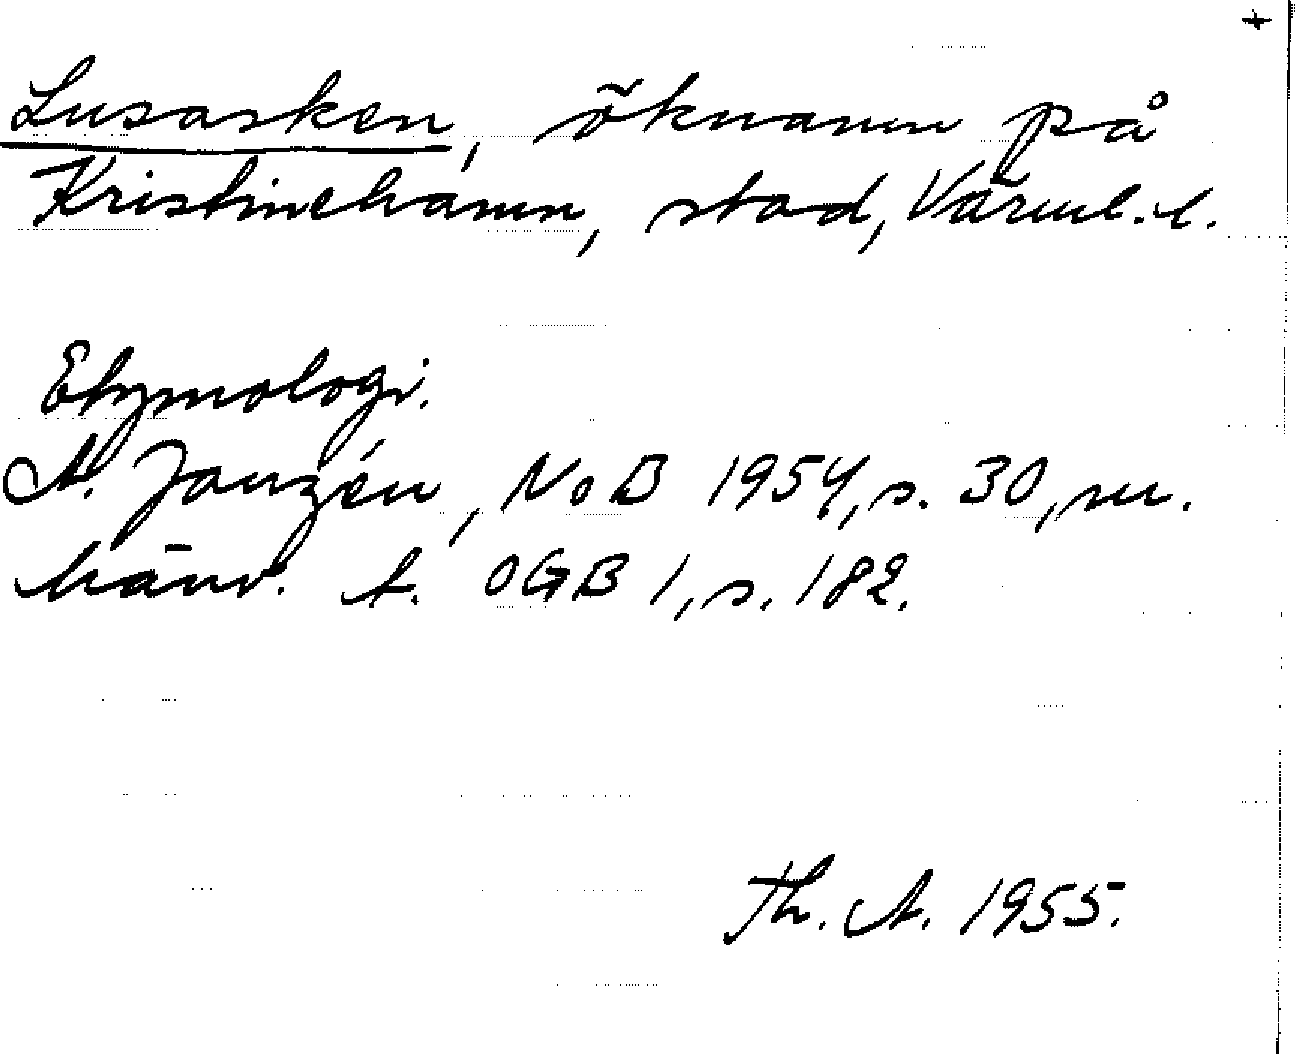 +
Lusasken, öknamn på
Kristinehamn, stad, Värml. l.
Etymologi.
A. Janzén, NoB 1954, s. 30, m.
hänv. t. OGB 1, s. 182.
Th. A. 1955.